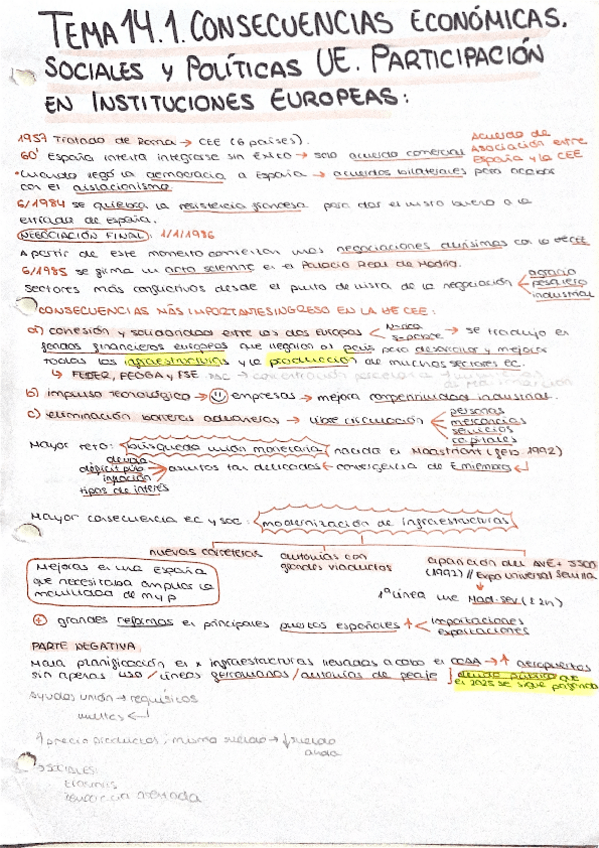 TEMA 14.1. CONSECUENCIAS ECONÓMICAS.
SOCIALES Y POLÍTICAS UE. PARTICIPACIÓN
EN INSTITUCIONES EUROPEAS:
1957 Tratado de Roma → CEE (6 países).
60' España intenta integrarse sin éxito → solo acuerdo comercial
Acuerdo de
Asociación entre
España y la CEE
• Cuando llegó la democracia a España → acuerdos bilaterales para acabar
con el aislacionismo
6/1984 se quiebra la resistencia francesa para dar el visto bueno a la
entrada de España.
NEGOCIACIÓN FINAL: 1/1/1986
A partir de este momento comienzan unas negociaciones durísimas con la CEE
6/1985 se firma un acto solemne en el Palacio Real de Madrid.
Sectores más conflictivos desde el punto de vista de la negociación
agrario
pesquero
industrial
CONSECUENCIAS MÁS IMPORTANTES INGRESO EN LA CEE:
a) cohesión y solidaridad entre las dos Europas
→ se tradujo en
fondos financieros europeos que llegaron al país para desarrollar y mejorar
todas las infraestructuras y la producción de muchos sectores ec.
↳ FEDER, FEOGA y FSE
b) impulso tecnológico → empresas → mejora competitividad industrial.
c) eliminación barreras aduaneras → libre circulación
personas
mercancías
servicios
capitales
Mayor reto: búsqueda unión monetaria nacida en Maastricht (feb 1992)
deuda
déficit púb
inflación
tipos de interés
→ asuntos tan delicados ← convergencia de E. miembros
Mayor consecuencia ec y soc: modernización de infraestructuras
nuevas carreteras
autovías con
grandes viaductos
aparición del AVE + JJOO
(1992) // Expo Universal Sevilla
1ª línea Mad-Sev (2h)
Mejoras en una España
que necesitaba ampliar la
movilidad de m y p
+ grandes reformas en principales puertos españoles ↑
importaciones
exportaciones
PARTE NEGATIVA
Mala planificación en x infraestructuras llevadas a cabo en CCAA → ↑ aeropuertos
sin apenas uso / líneas / autovías de peaje
deuda pública que
en 2025 se sigue pagando
ayudas unión → requisitos
multas
↑ precio productos, mismo sueldo → ↓ sueldo
SOCIALES:
Erasmus